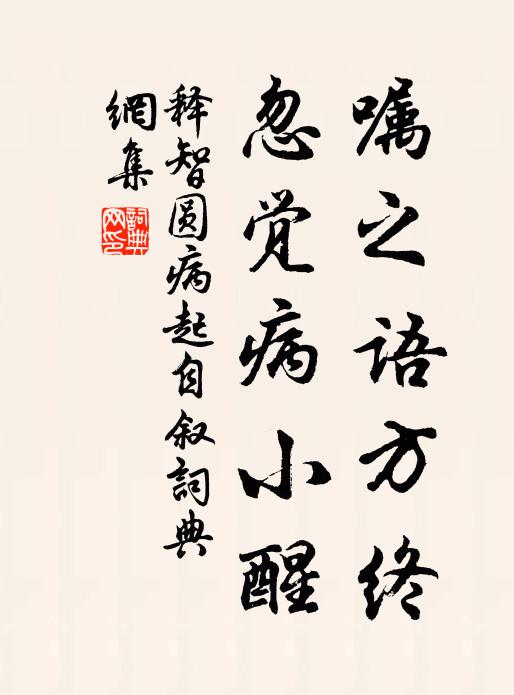 嘱之语方终
忽觉病小醒
释智圆病起自叙詞典
網集
詞典网印